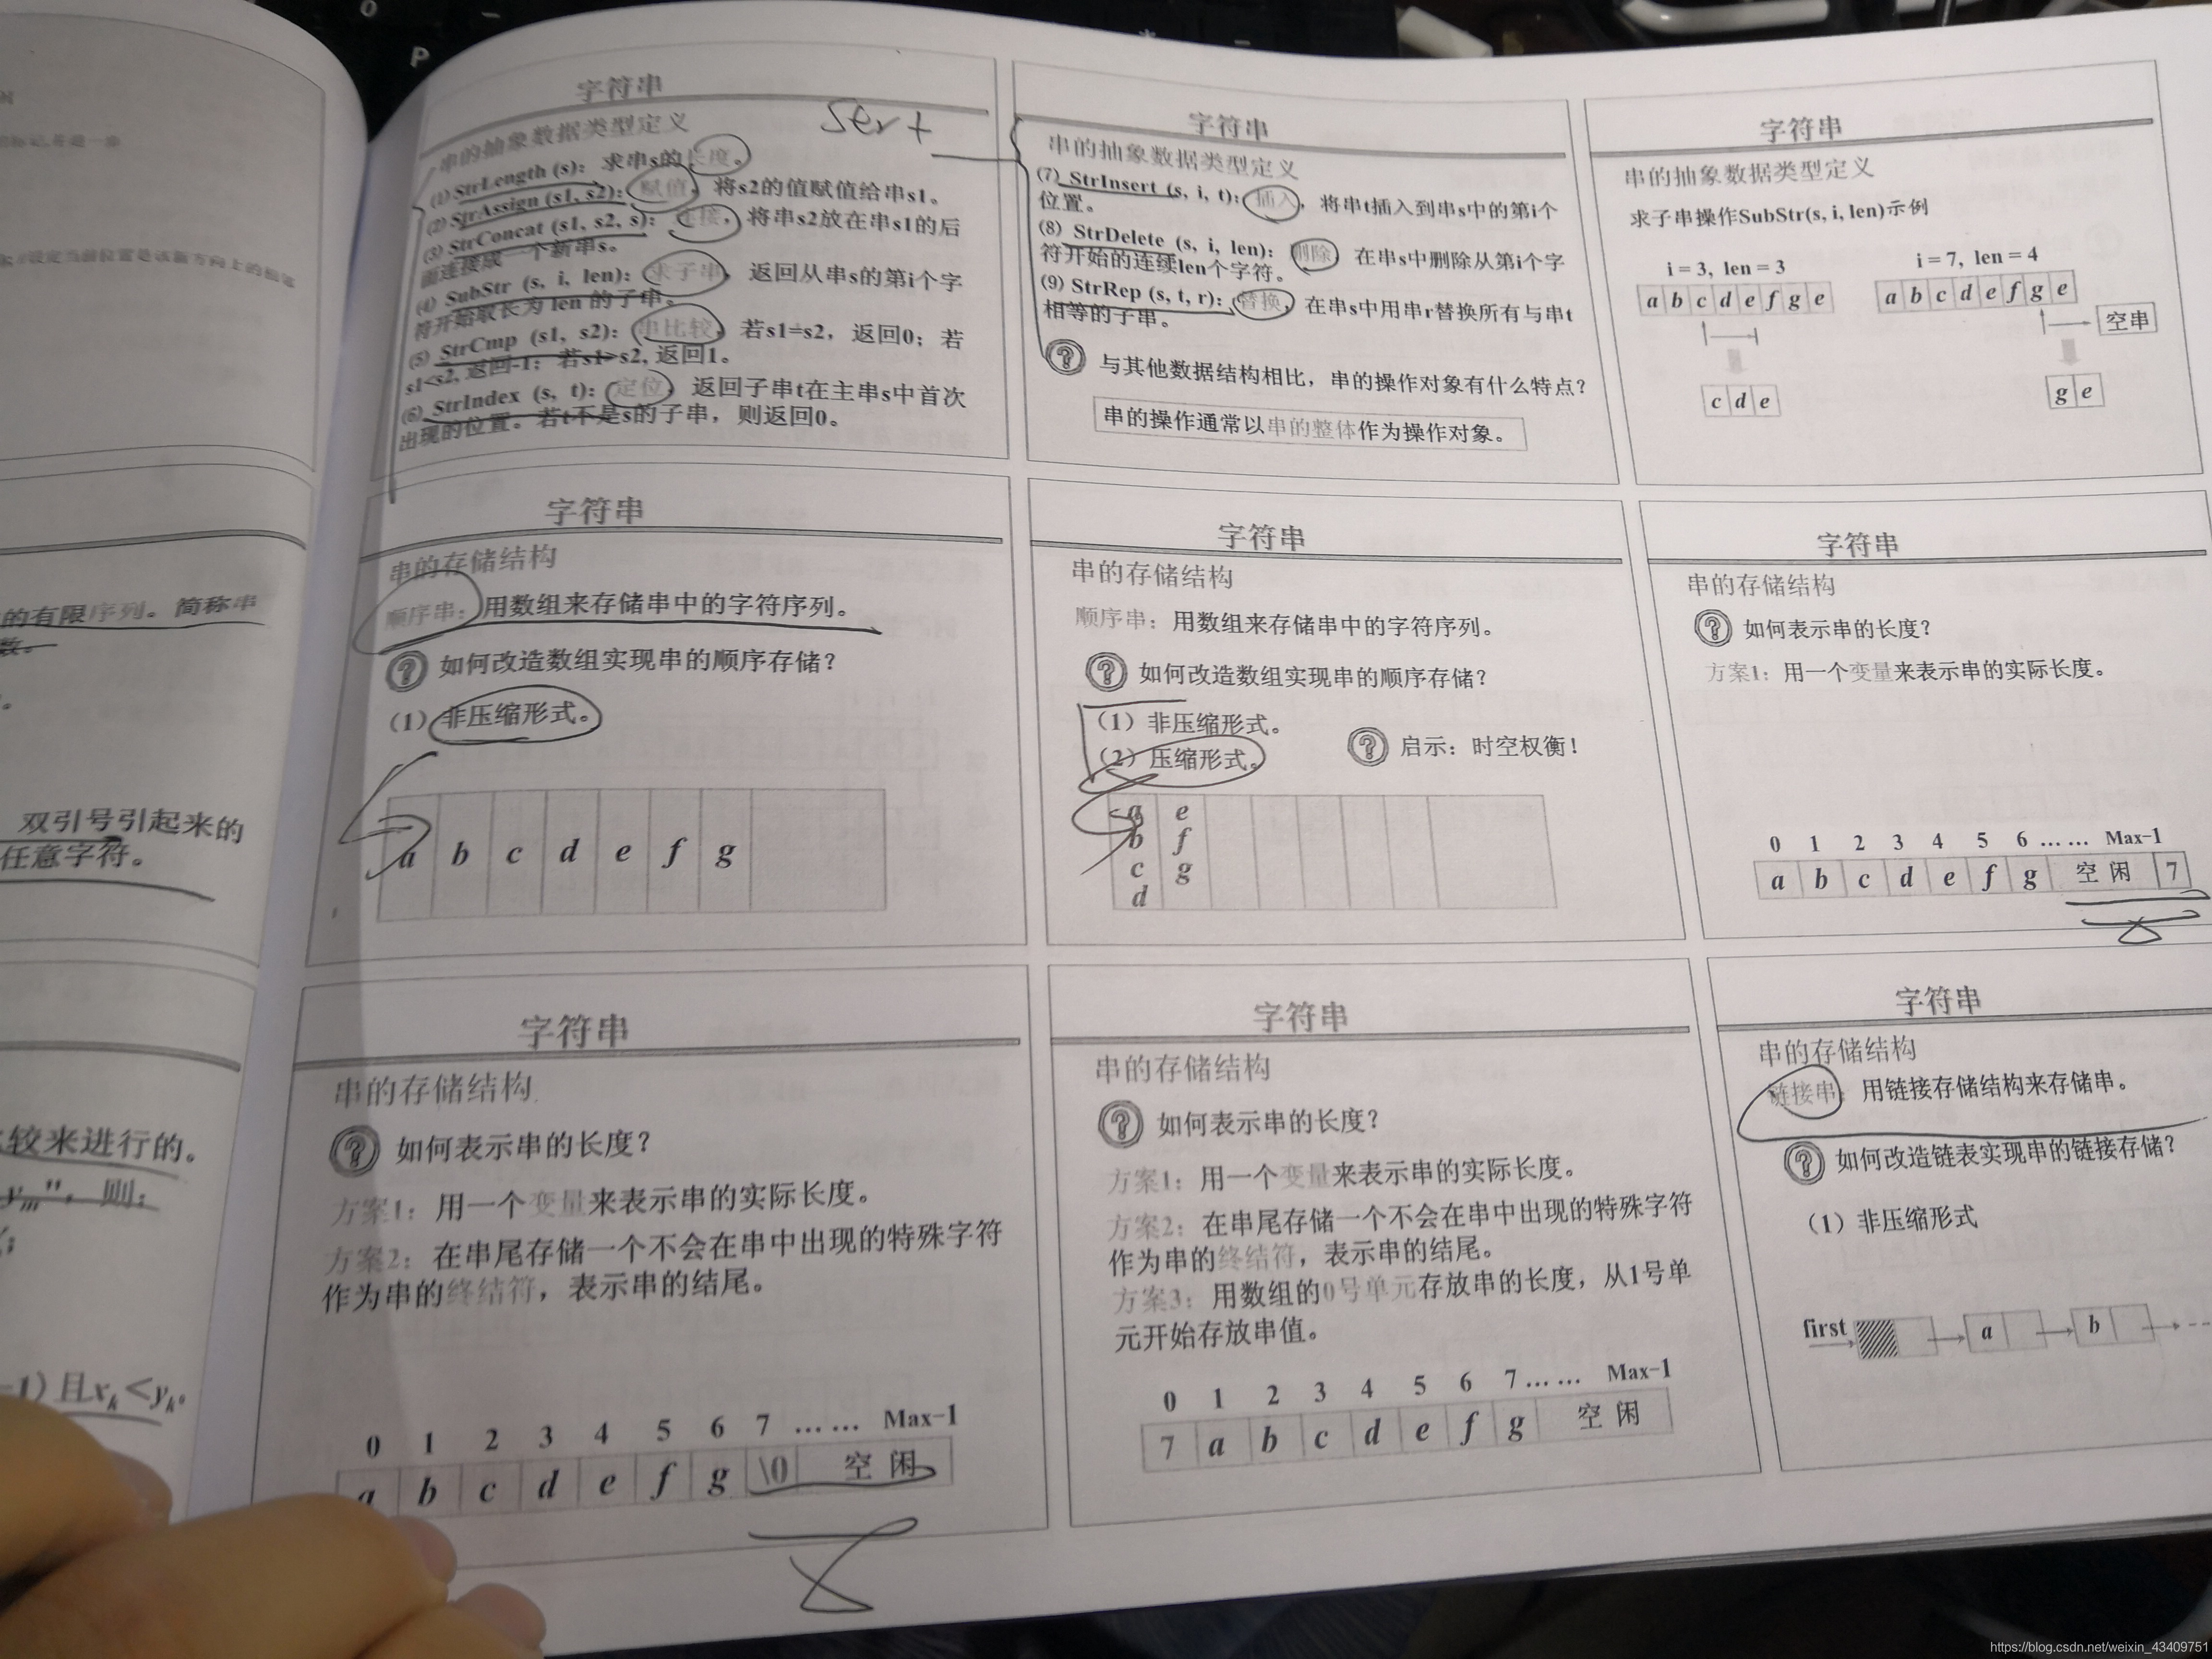 的有限序列。简称串
数。
双引号引起来的
任意字符。
较来进行的。
yₘ"，则：
-1) 且xₖ<yₖ。
字符串
串的抽象数据类型定义
sert
(1) StrLength (s)：求串s的长度。
(2) StrAssign (s1, s2)：赋值，将s2的值赋值给串s1。
(3) StrConcat (s1, s2, s)：连接，将串s2放在串s1的后
面连接成一个新串s。
(4) SubStr (s, i, len)：求子串，返回从串s的第i个字
符开始取长为 len 的子串。
(5) StrCmp (s1, s2)：串比较，若s1=s2，返回0；若
s1<s2, 返回-1；若s1>s2, 返回1。
(6) StrIndex (s, t)：定位，返回子串t在主串s中首次
出现的位置。若t不是s的子串，则返回0。
字符串
串的抽象数据类型定义
(7) StrInsert (s, i, t)：插入，将串t插入到串s中的第i个
位置。
(8) StrDelete (s, i, len)：删除，在串s中删除从第i个字
符开始的连续len个字符。
(9) StrRep (s, t, r)：替换，在串s中用串r替换所有与串t
相等的子串。
? 与其他数据结构相比，串的操作对象有什么特点？
串的操作通常以串的整体作为操作对象。
字符串
串的抽象数据类型定义
求子串操作SubStr(s, i, len)示例
i = 3, len = 3
a b c d e f g e
c d e
i = 7, len = 4
a b c d e f g e
空串
g e
字符串
串的存储结构
顺序串：用数组来存储串中的字符序列。
? 如何改造数组实现串的顺序存储？
(1) 非压缩形式。
a b c d e f g
字符串
串的存储结构
顺序串：用数组来存储串中的字符序列。
? 如何改造数组实现串的顺序存储？
(1) 非压缩形式。
(2) 压缩形式。
? 启示：时空权衡！
a e
b f
c g
d
字符串
串的存储结构
? 如何表示串的长度？
方案1：用一个变量来表示串的实际长度。
0 1 2 3 4 5 6 …… Max-1
a b c d e f g 空 闲 7
字符串
串的存储结构
? 如何表示串的长度？
方案1：用一个变量来表示串的实际长度。
方案2：在串尾存储一个不会在串中出现的特殊字符
作为串的终结符，表示串的结尾。
0 1 2 3 4 5 6 7 …… Max-1
a b c d e f g \0 空 闲
字符串
串的存储结构
? 如何表示串的长度？
方案1：用一个变量来表示串的实际长度。
方案2：在串尾存储一个不会在串中出现的特殊字符
作为串的终结符，表示串的结尾。
方案3：用数组的0号单元存放串的长度，从1号单
元开始存放串值。
0 1 2 3 4 5 6 7 …… Max-1
7 a b c d e f g 空 闲
字符串
串的存储结构
链接串：用链接存储结构来存储串。
? 如何改造链表实现串的链接存储？
(1) 非压缩形式
first a b
https://blog.csdn.net/weixin_43409751